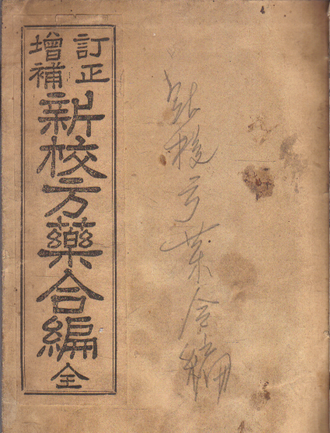 訂正
增補
新校方藥合編 全
新校方 合編